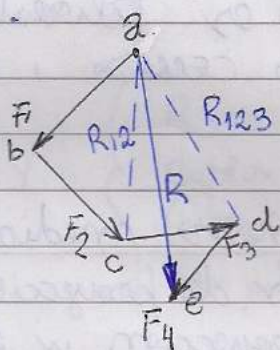 a
F1
b
R12
R123
R
F2
c
d
F3
e
F4